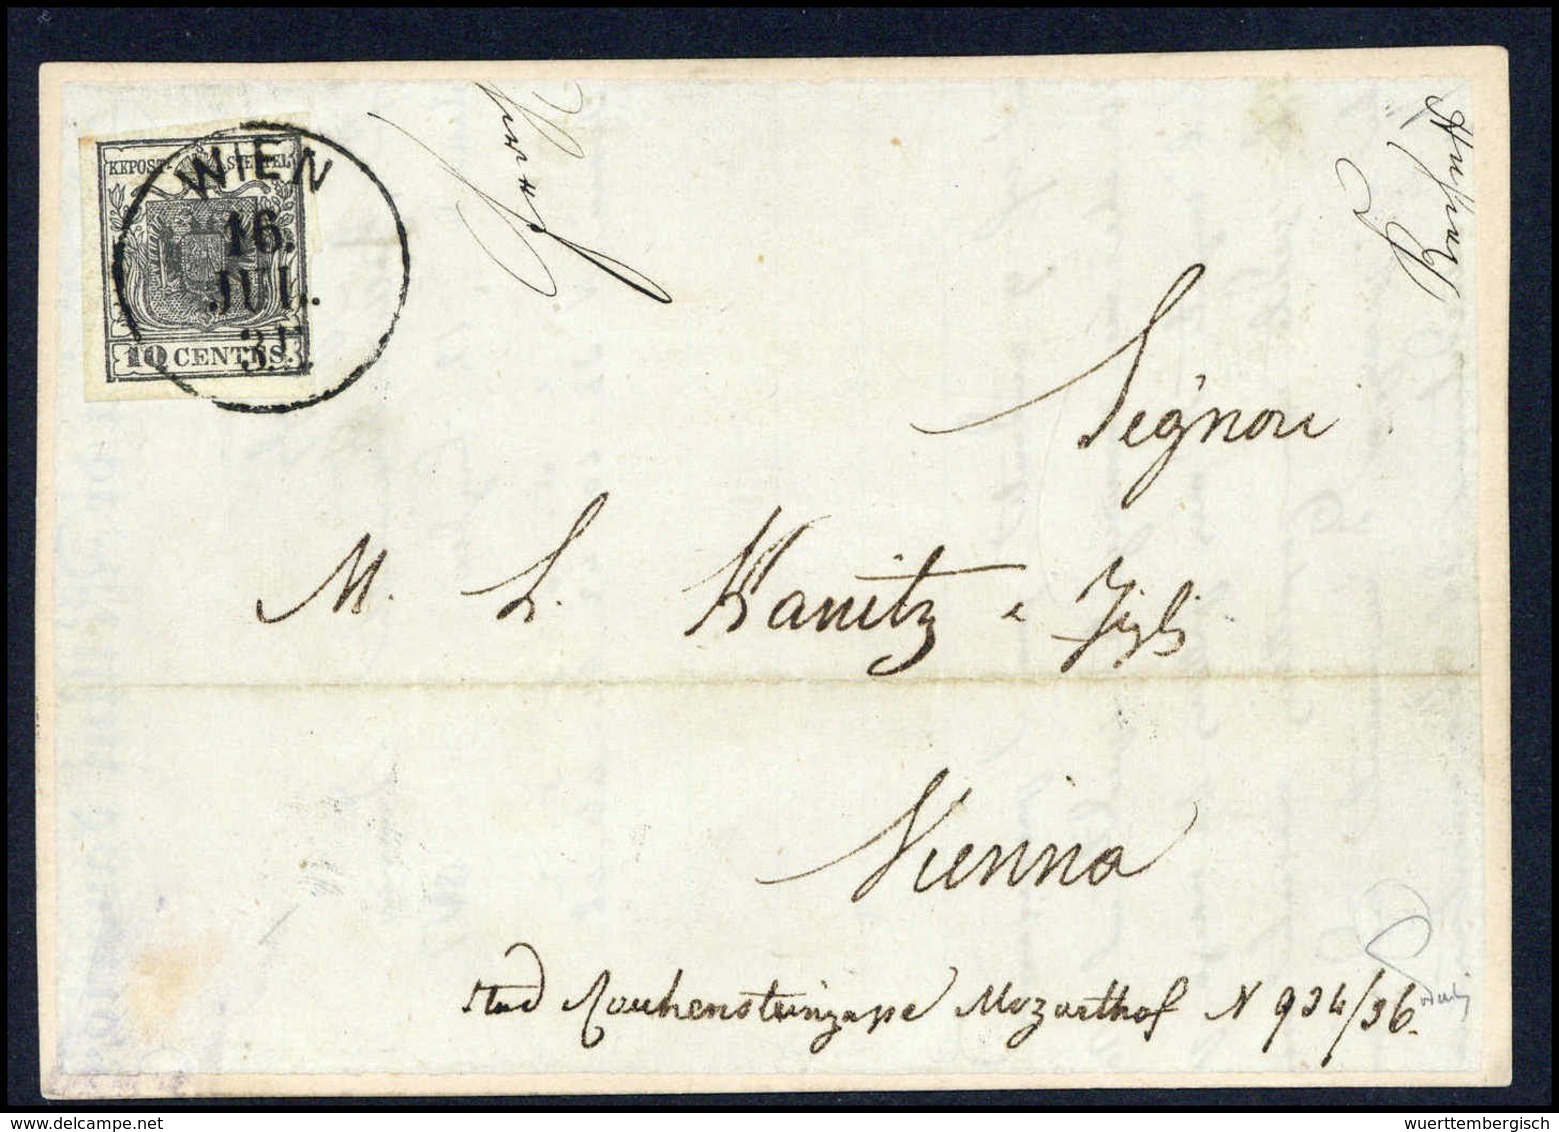 KKPOST-STEMPEL
WIEN
16.
JUL.
10 CENTES.
franco
Signori
M. L. Kanitz e figli
Vienna
Stad Rauhensteingasse Mozarthof N 934/36.
wuerttembergisch
www.delcampe.net